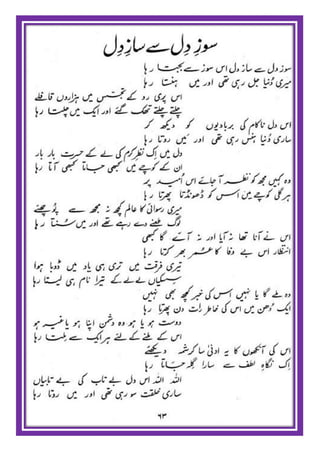 سوزِ دِل سے سازِ دِل
سوز دل سے ساز دل اس سوز سے بجھتا رہا
میری دُنیا جل رہی تھی اور میں ہنستا رہا
اس پری رو کے تجسّس میں ہزاروں قافلے
چلتے چلتے تھک گئے اور ایک میں چلتا رہا
اس دل ناکام کی بربادیوں کو دیکھ کر
ساری دُنیا ہنس رہی تھی اور میں روتا رہا
دل میں اِک نظرِ کرم کی لے کے حسرت بار بار
ان کے کوچے میں کبھی جاتا کبھی آتا رہا
وہ کہیں مجھ کو نظر آ جائے اس اُمید پر
ہر گلی کوچے میں اُس کو ڈھونڈتا پھرتا رہا
میری رسوائی کا عالم کچھ نہ مجھ سے پوچھیئے
لوگ طعنے دے رہے تھے اور میں سُنتا رہا
اس نے آنا تھا نہ آیا اور نہ آئے گا کبھی
انتظار اس بے وفا کا عمر بھر کرتا رہا
تیری فرقت میں تری ہی یاد میں ڈوبا ہوا
سسکیاں لے لے کے تیرا نام ہی لیتا رہا
وہ ملے گا یا نہیں اس کی خبر کچھ بھی نہیں
ایک دُھن میں اس کی خاطر رات دن پھرتا رہا
دوست ہو یا ہو وہ دشمن اپنا ہو یا غیر ہو
اس کے ملنے کے لئے ہر ایک سے ملتا رہا
اس کی آنکھوں کا یہ ادنیٰ سا کرشمہ دیکھئے
اِک نگاہِ لطف سے سارا گلہ جاتا رہا
اللہ اللہ اس دل بے تاب کی بے تابیاں
ساری خلقت سو رہی تھی اور میں روتا رہا
۶۳